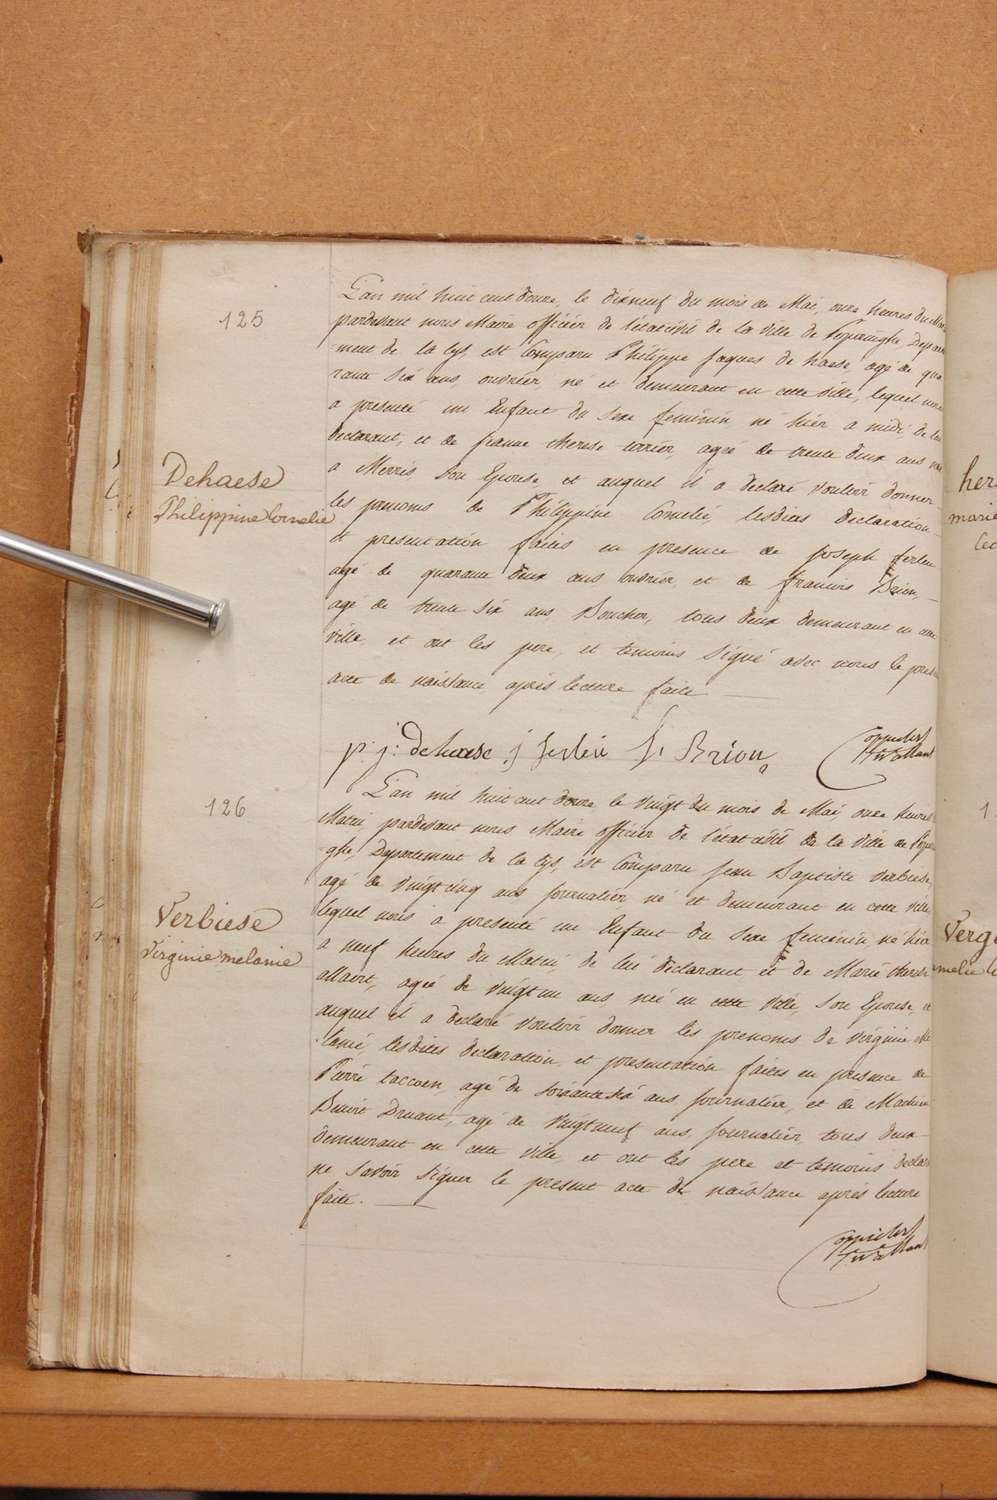 125
Dehaese
Philippine Cornelie
L'an mil huit cent douze, le dixneuf du mois de Mai, onze heures du Mat
pardevant nous Maire officier de l'état civil de la ville de Poperinghe Depart
-ment de la Lys, est Comparu Philippe Jaques de haese, agé de qua
rante six ans, ouvrier né et demeurant en cette ville, lequel nous
a presenté un Enfant du Sexe feminin né hier a midi de lui
declarant, et de jeanne therese agée de trente deux ans née
a Merris, Son Epouse, et auquel il a declaré vouloir donner
les prenoms de Philippine Cornelie, lesdites declaration
et presentation faites en presence de Joseph ferlein
agé de quarante deux ans ouvrier, et de francois Brion,
agé de trente six ans Boucher, tous deux demeurant en cette
ville, et ont les pere, et temoins Signé avec nous le prese
acte de naissance après lecture faite
p: j: dehaese j ferlein f. Brion
126
Verbiese
Virginie melanie
L'an mil huit cent douze le vingt du mois de Mai, onze heures
Matin, pardevant nous Maire officier de l'état civil de la Ville de Poperin
-ghe, Departement de la Lys, est Comparu Jean Baptiste Verbiese,
agé de vingt cinq ans Journalier né et demeurant en cette ville,
lequel nous a presenté un Enfant du Sexe feminin né hier
a neuf heures du Matin, de lui declarant et de Marie therese
allaert, agée de vingt un ans née en cette Ville, Son Epouse, et
auquel il a declaré vouloir donner les prenoms de Virginie Me
-lanie, lesdites declaration, et presentation faites en presence de
Pierre taccoen, agé de soixante six ans journalier, et de Mathieu
Benoit Druant, agé de vingt neuf ans, journalier, tous deux
demeurant en cette ville, et ont les pere et temoins declaré
ne savoir signer le present acte de naissance après lecture
faite.